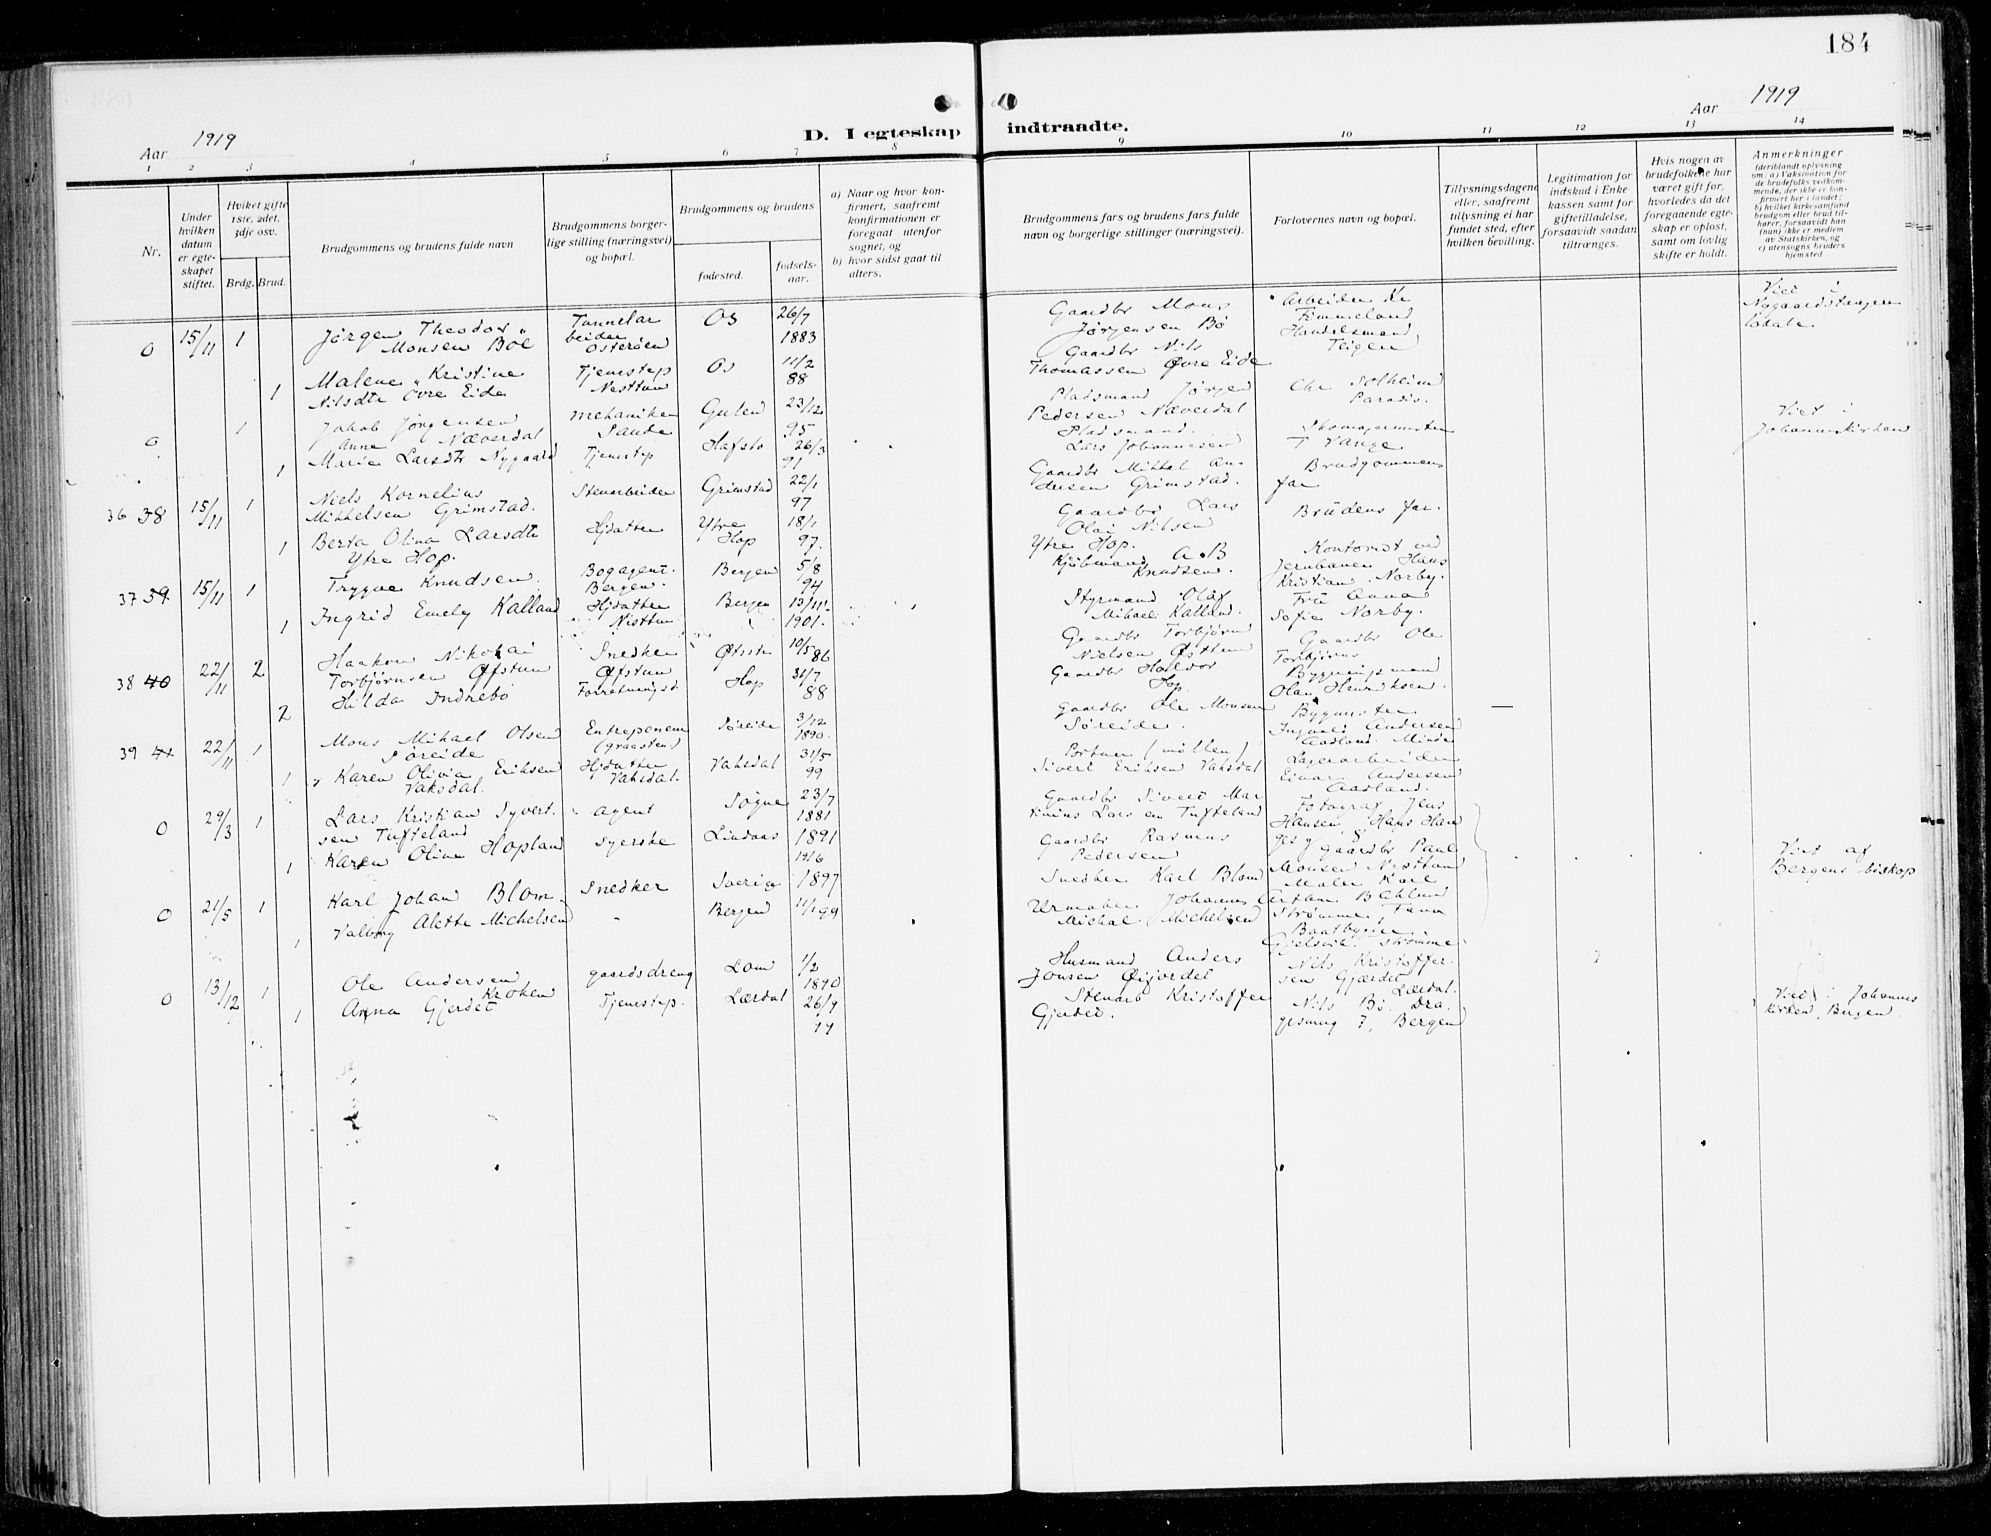 184
Aar 1919
D. I egteskap indtraadte.
Aar 1919
1 2 3 4 5 6 7 8 9 10 11 12 13 14
Nr.
Under hvilken datum er egteskapet stiftet.
Hviket gifte 1ste, 2det, 3dje osv.
Brdg. Brud.
Brudgommens og brudens fulde navn
Brudgommens borgerlige stilling (næringsvei) og bopæl.
Brudgommens og brudens
fødested.
fødselsaar.
a) Naar og hvor konfirmert, saafremt konfirmationen er foregaat utenfor sognet, og
b) hvor sidst gaat til alters.
Brudgommens fars og brudens fars fulde navn og borgerlige stillinger (næringsvei).
Forlovernes navn og bopæl.
Tillysningsdagene eller, saafremt tillysning ei har fundet sted, efter hvilken bevilling.
Legitimation for indskud i Enkekassen samt for giftetilladelse, forsaavidt saadan tiltrænges.
Hvis nogen av brudefolkene har været gift før, hvorledes da det foregaaende egteskap er opløst, samt om lovlig skifte er holdt.
Anmerkninger
(deriblandt oplysning om: a) Vaksination for de brudefolks vedkommende, der ikke er konfirmert her i landet; b) hvilket kirkesamfund brudgom eller brud tilhører, forsaavidt han (hun) ikke er medlem av Statskirken, og c) utensogns bruders hjemsted
0 15/11 1 Jørgen Theodor Monsen Bøe Tunnelarbeider Osterøen Os 26/7 1883 Gaardbr Mons Jørgensen Bø Arbeider Kr Fimmeland Handelsmand Teigen Viet i
1 Malene Kristine Nilsdtr Øvre Eide Tjenstep Nesttun Os 11/2 88 Gaardbr Nils Thomassen Øvre Eide
0 1 Jakob Jørgensen Næverdal mekaniker Sande Gulen 23/12 95 Pladsmand Jørgen Pedersen Næverdal Chr Solheim Paradis. Viet i Johanneskirken
1 Anne Marie Larsdtr Nygaard Tjenstep Hafslo 26/3 91 Pladsmand. Lars Johannesen Skomagermester T Vange
36 38 15/11 1 Niels Kornelius Mikkelsen Grimstad. Stenarbeider Grimstad 22/1 97 Gaardbr Mikkal Andersen Grimstad. Brudgommens far
1 Berta Olina Larsdtr Ytre Hop. Hjdatter Ytre Hop 18/1 97. Gaardbr Lars Olai Nilsen Ytre Hop. Brudens far.
37 39 15/11 1 Trygve Knudsen. Bogagent. Bergen. Bergen 5/8 94 Kjøbmand A. B Knudsen. Kontorist ved Jernbanen Hans Kristian Norby.
1 Ingrid Emely Kalland Hjdatter Nesttun Bergen 13/11 1901. Styrmand Olaf Mikael Kalland. Fru Anna Sofie Norby.
38 40 22/11 2 Haakon Nikolai Torbjørnsen Øfstun Snedker Øfstun Øfstun 10/5 86 Gaardbr Torbjørn Nielsen Øfsthun Gaardbr Ole Torbjørns
2 Hilda Indrebø Forretningsd. Hop 31/7 88 Gaardbr Halvor Hop. Bygningsmand Olan Henriksen.
39 41 22/11 1 Mons Mikael Olsen Søreide Entreprenør (graasten) Søreide 3/12 1890. Gaardbr Ole Monsen Søreide. Bygmester Ingvald Andersen Aadland. Minde
1 Karen Olivia Eriksen Vaksdal. Hjdatter Vaksdal. Vaksdal 31/5 99 Portner (møllen) Sivert Eriksen Vaksdal Lagerarbeider Einar Andersen Aadland.
0 29/3 1 Lars Kristian Syvertsen Tufteland agent Sogne 23/7 1881 Gaardbr Sivert Martinius Larsen Tufteland Fotograf Jens Hansen
1 Karen Oline Hopland syerske Lindaas 1891 Gaardbr Rasmus Pedersen gaardbr Paul Monsen Nesttun Viet af Bergens biskop
0 21/5 1 Karl Johan Blom Snedker Sverig 19/6 1897 Snedker Karl Blom Maler Karl
1 Valborg Alette Michelsen Bergen 11/1 99 Urmaker Johannes Michal Michelsen Strømme, Fana Baatbygger Gjelsvik. Strømme.
0 13/12 1 Ole Andersen Kroken gaardsdreng Lom 1/2 1890 Husmand Anders Jonsen Øijordet Nils Kristoffersen Gjærdet Lærdal.
1 Anna Gjerdet Tjenstep. Lærdal 26/9 Stenarb Kristoffer Gjerdet. Nils Bø. Dragesmug 7, Bergen Viet i Johanneskirken, Bergen.